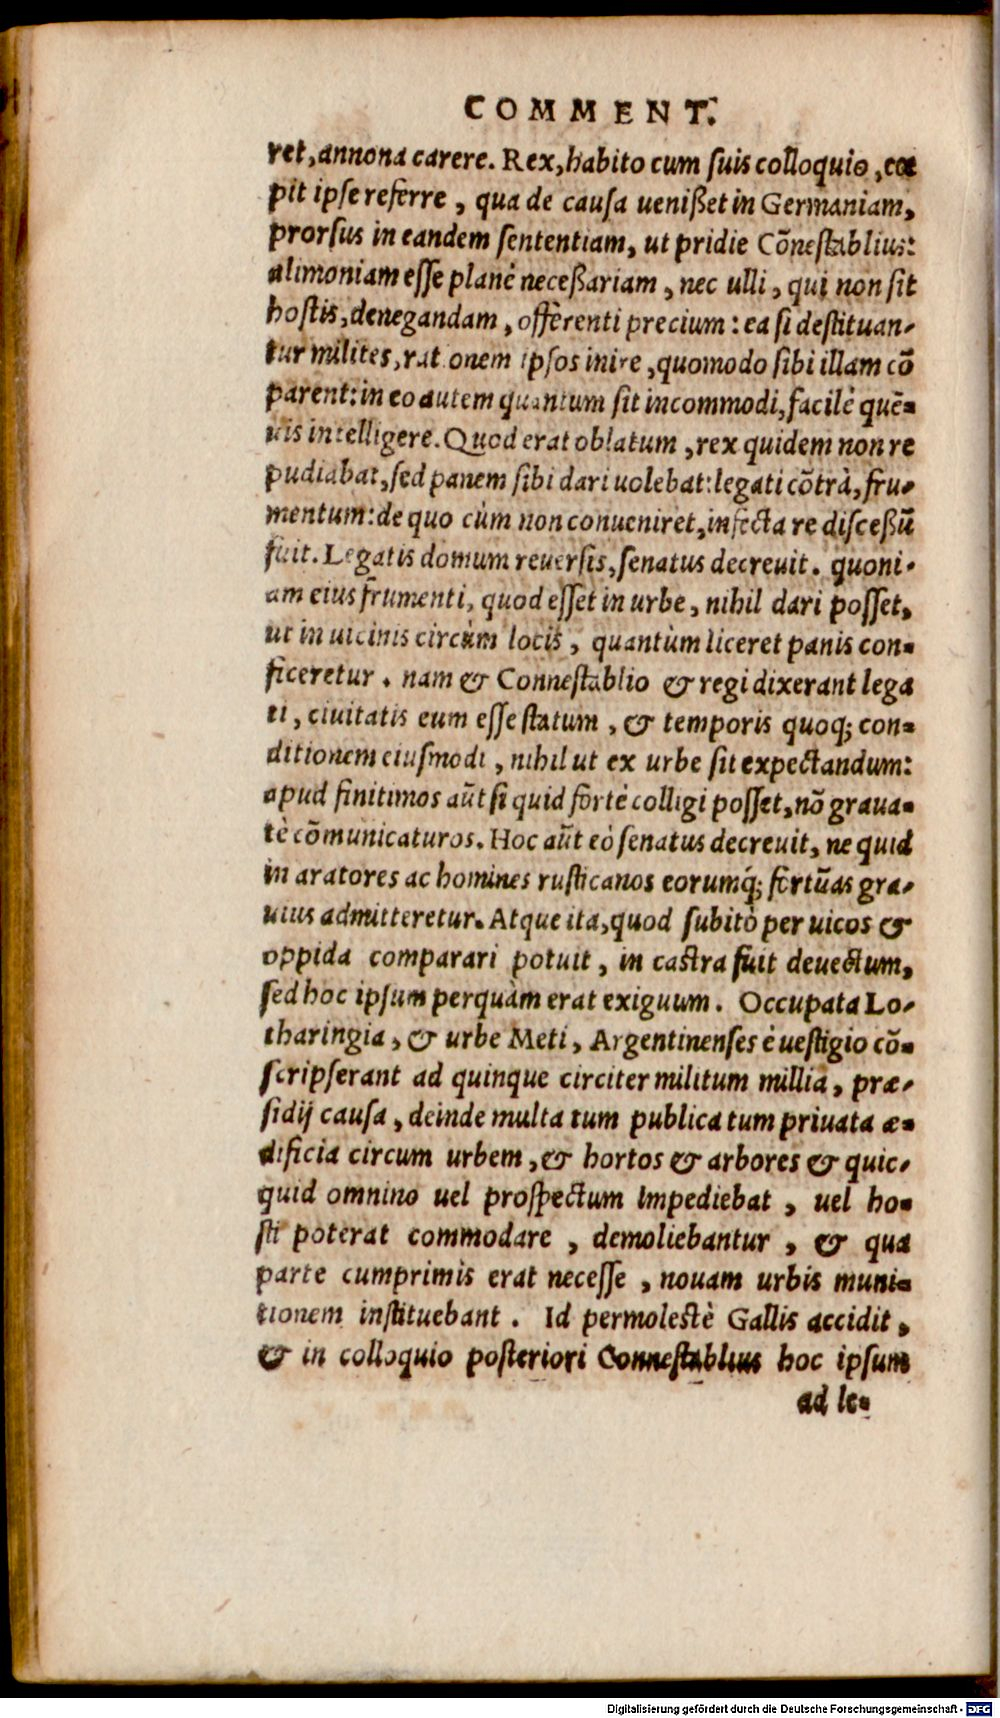 COMMENT.
ret, annona carere. Rex, habito cum suis colloquio, cœ
pit ipse referre, qua de causa uenißet in Germaniam,
prorsus in eandem sententiam, ut pridie Cõnestablius:
alimoniam esse planè neceßariam, nec ulli, qui non sit
hostis, denegandam, offerenti precium: ea si destituan-
tur milites, rationem ipsos inire, quomodo sibi illam cõ
parent: in eo autem quantum sit incommodi, facilè quẽ-
uis intelligere. Quod erat oblatum, rex quidem non re
pudiabat, sed panem sibi dari uolebat: legati cõtrà, fru-
mentum: de quo cùm non conueniret, infecta re disceßũ
fuit. Legatis domum reuersis, senatus decreuit. quoni-
am eius frumenti, quod esset in urbe, nihil dari posset,
ut in uicinis circùm locis, quantùm liceret panis con-
ficeretur. nam & Connestablio & regi dixerant lega
ti, ciuitatis eum esse statum, & temporis quoq; con-
ditionem eiusmodi, nihil ut ex urbe sit expectandum:
apud finitimos aũt si quid fortè colligi posset, nõ graua-
tè cõmunicaturos. Hoc aũt eò senatus decreuit, ne quid
in aratores ac homines rusticanos eorumq́; fortũas gra-
uius admitteretur. Atque ita, quod subitò per uicos &
oppida comparari potuit, in castra fuit deuectum,
sed hoc ipsum perquàm erat exiguum. Occupata Lo-
tharingia, & urbe Meti, Argentinenses è uestigio cõ-
scripserant ad quinque circiter militum millia, præ-
sidij causa, deinde multa tum publica tum priuata æ-
dificia circum urbem, & hortos & arbores & quic-
quid omnino uel prospectum impediebat, uel ho-
sti poterat commodare, demoliebantur, & qua
parte cumprimis erat necesse, nouam urbis muni-
tionem instituebant. Id permolestè Gallis accidit,
& in colloquio posteriori Connestablius hoc ipsum
ad le-
Digitalisierung gefördert durch die Deutsche Forschungsgemeinschaft - DFG